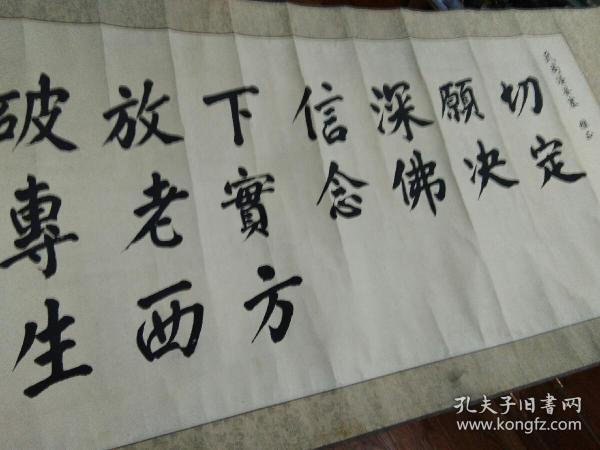 破放下信深願切
專老實念佛决定
生西方
孔夫子旧書网
www.kongfz.com